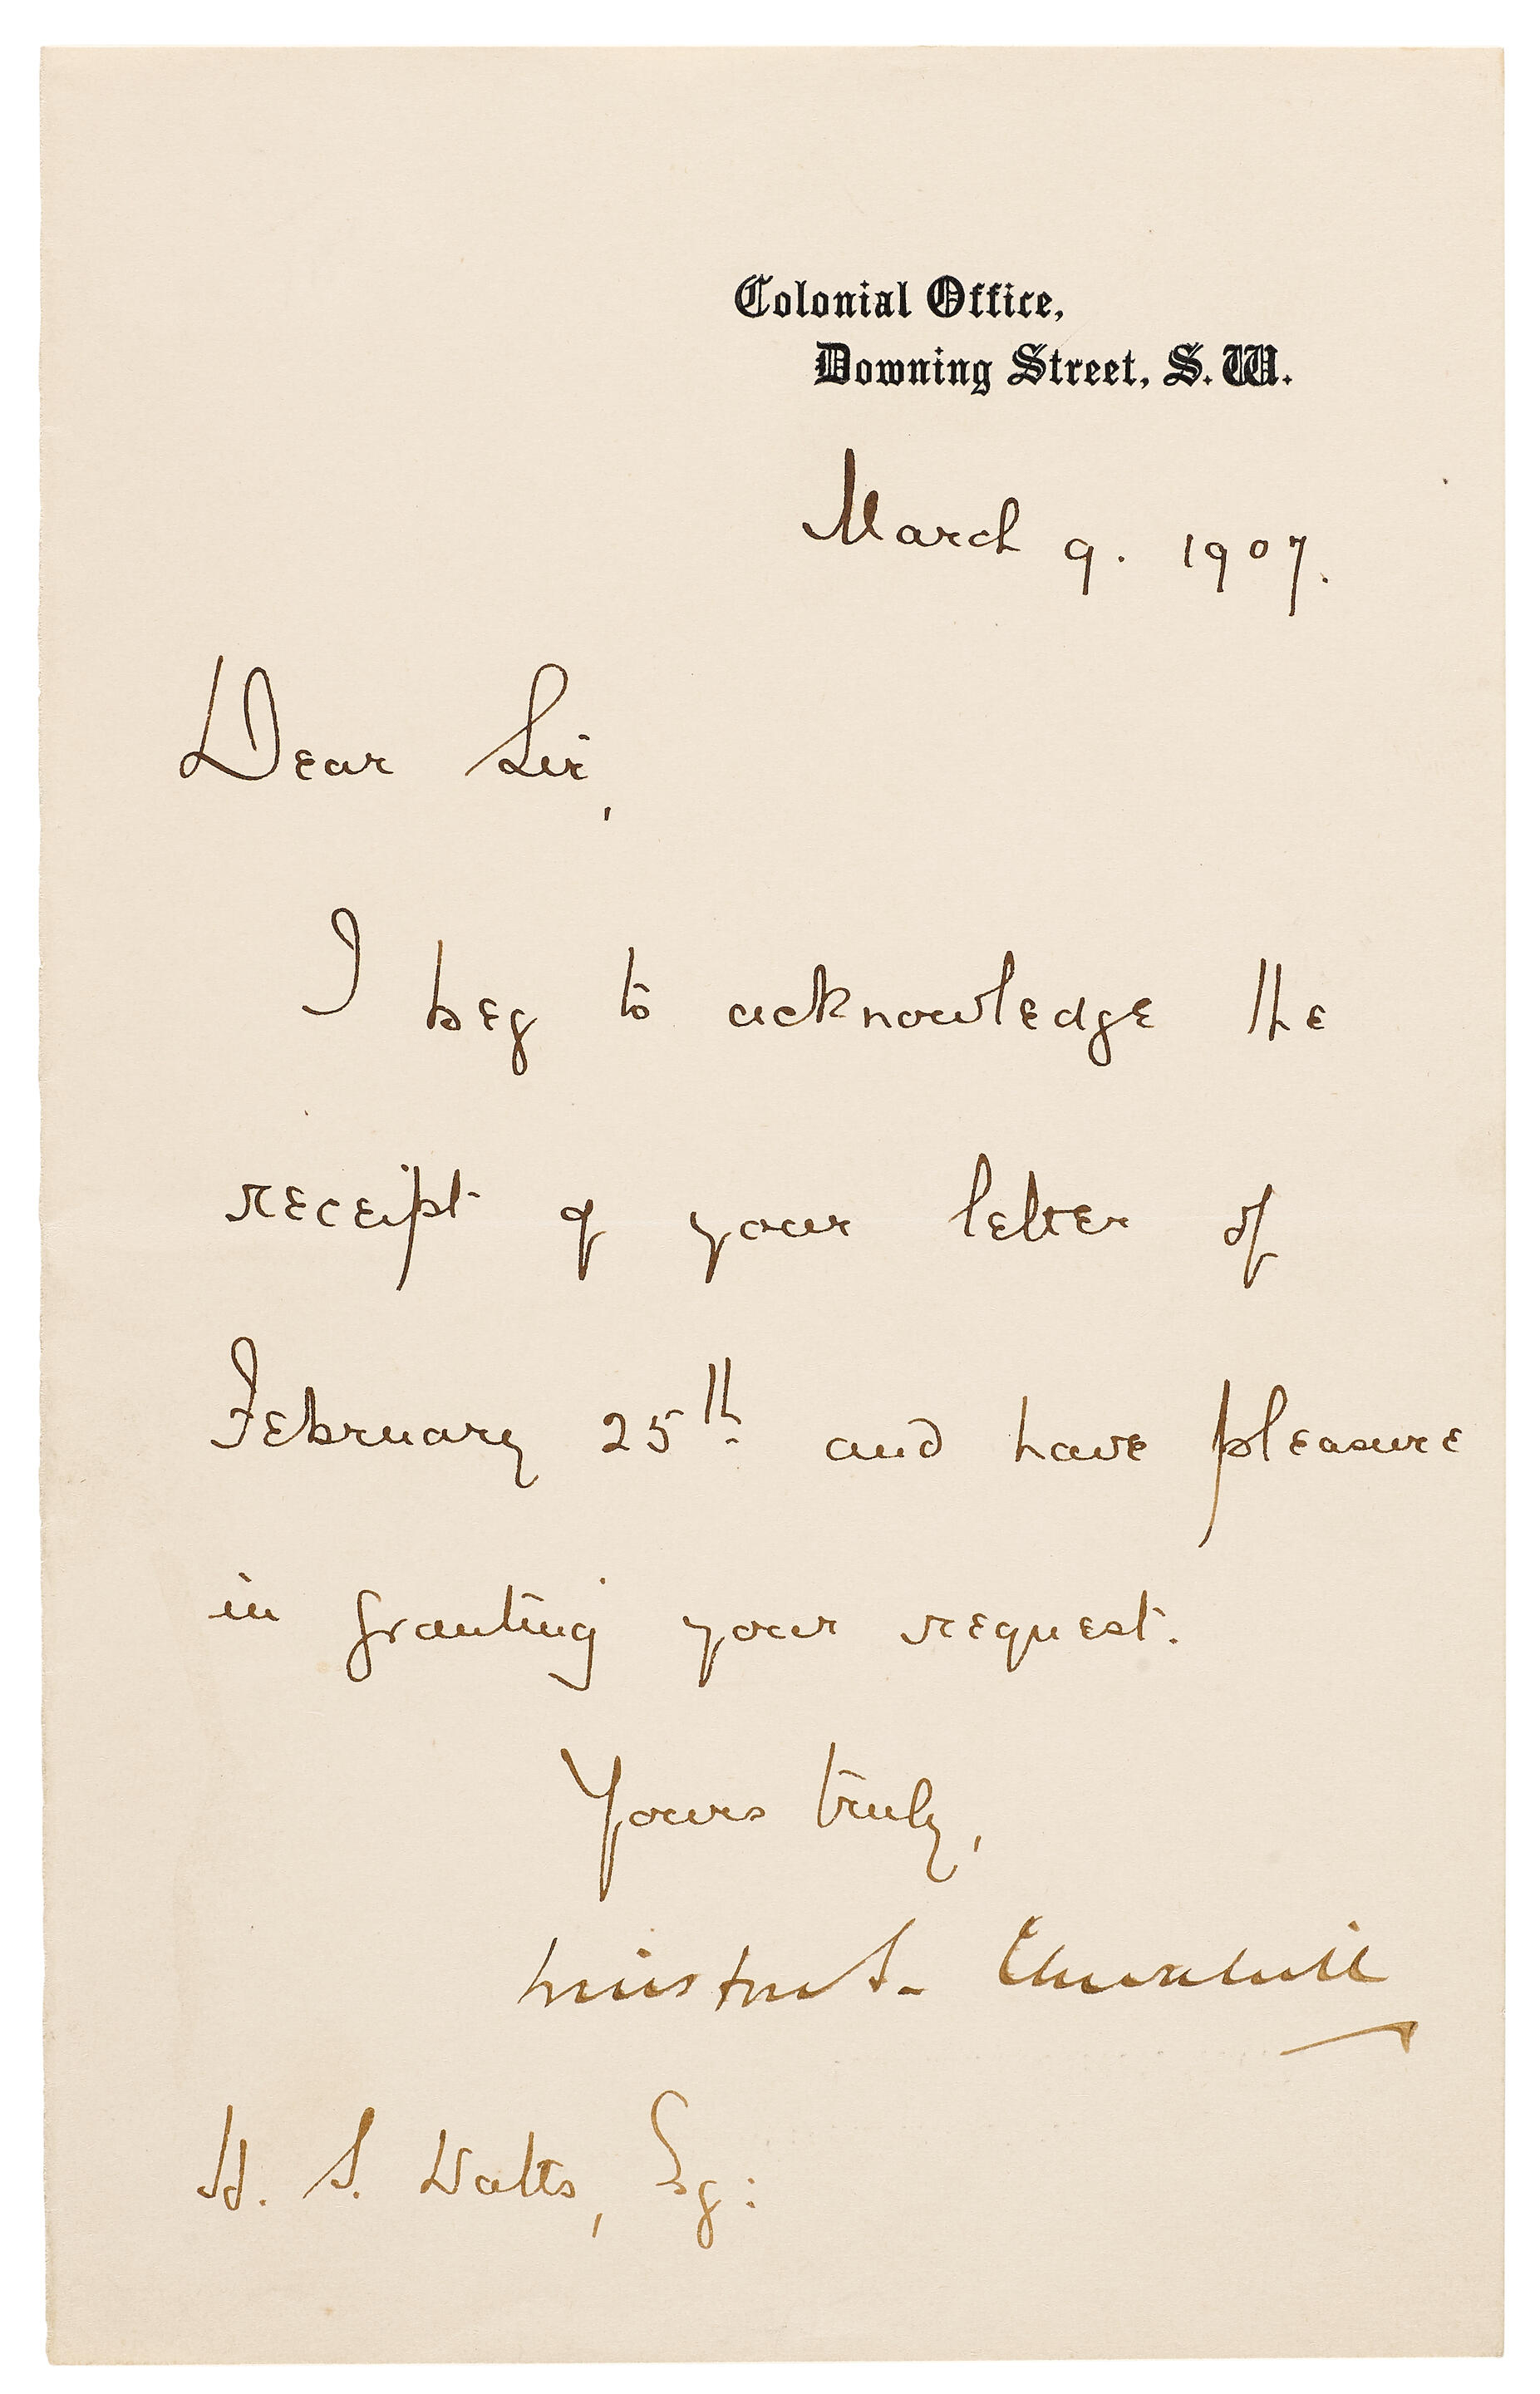 Colonial Office,
Downing Street, S.W.
March 9. 1907.
Dear Sir,
I beg to acknowledge the
receipt of your letter of
February 25th. and have pleasure
in granting your request.
Yours truly,
Winston S. Churchill
H. S. Watts, Esq: